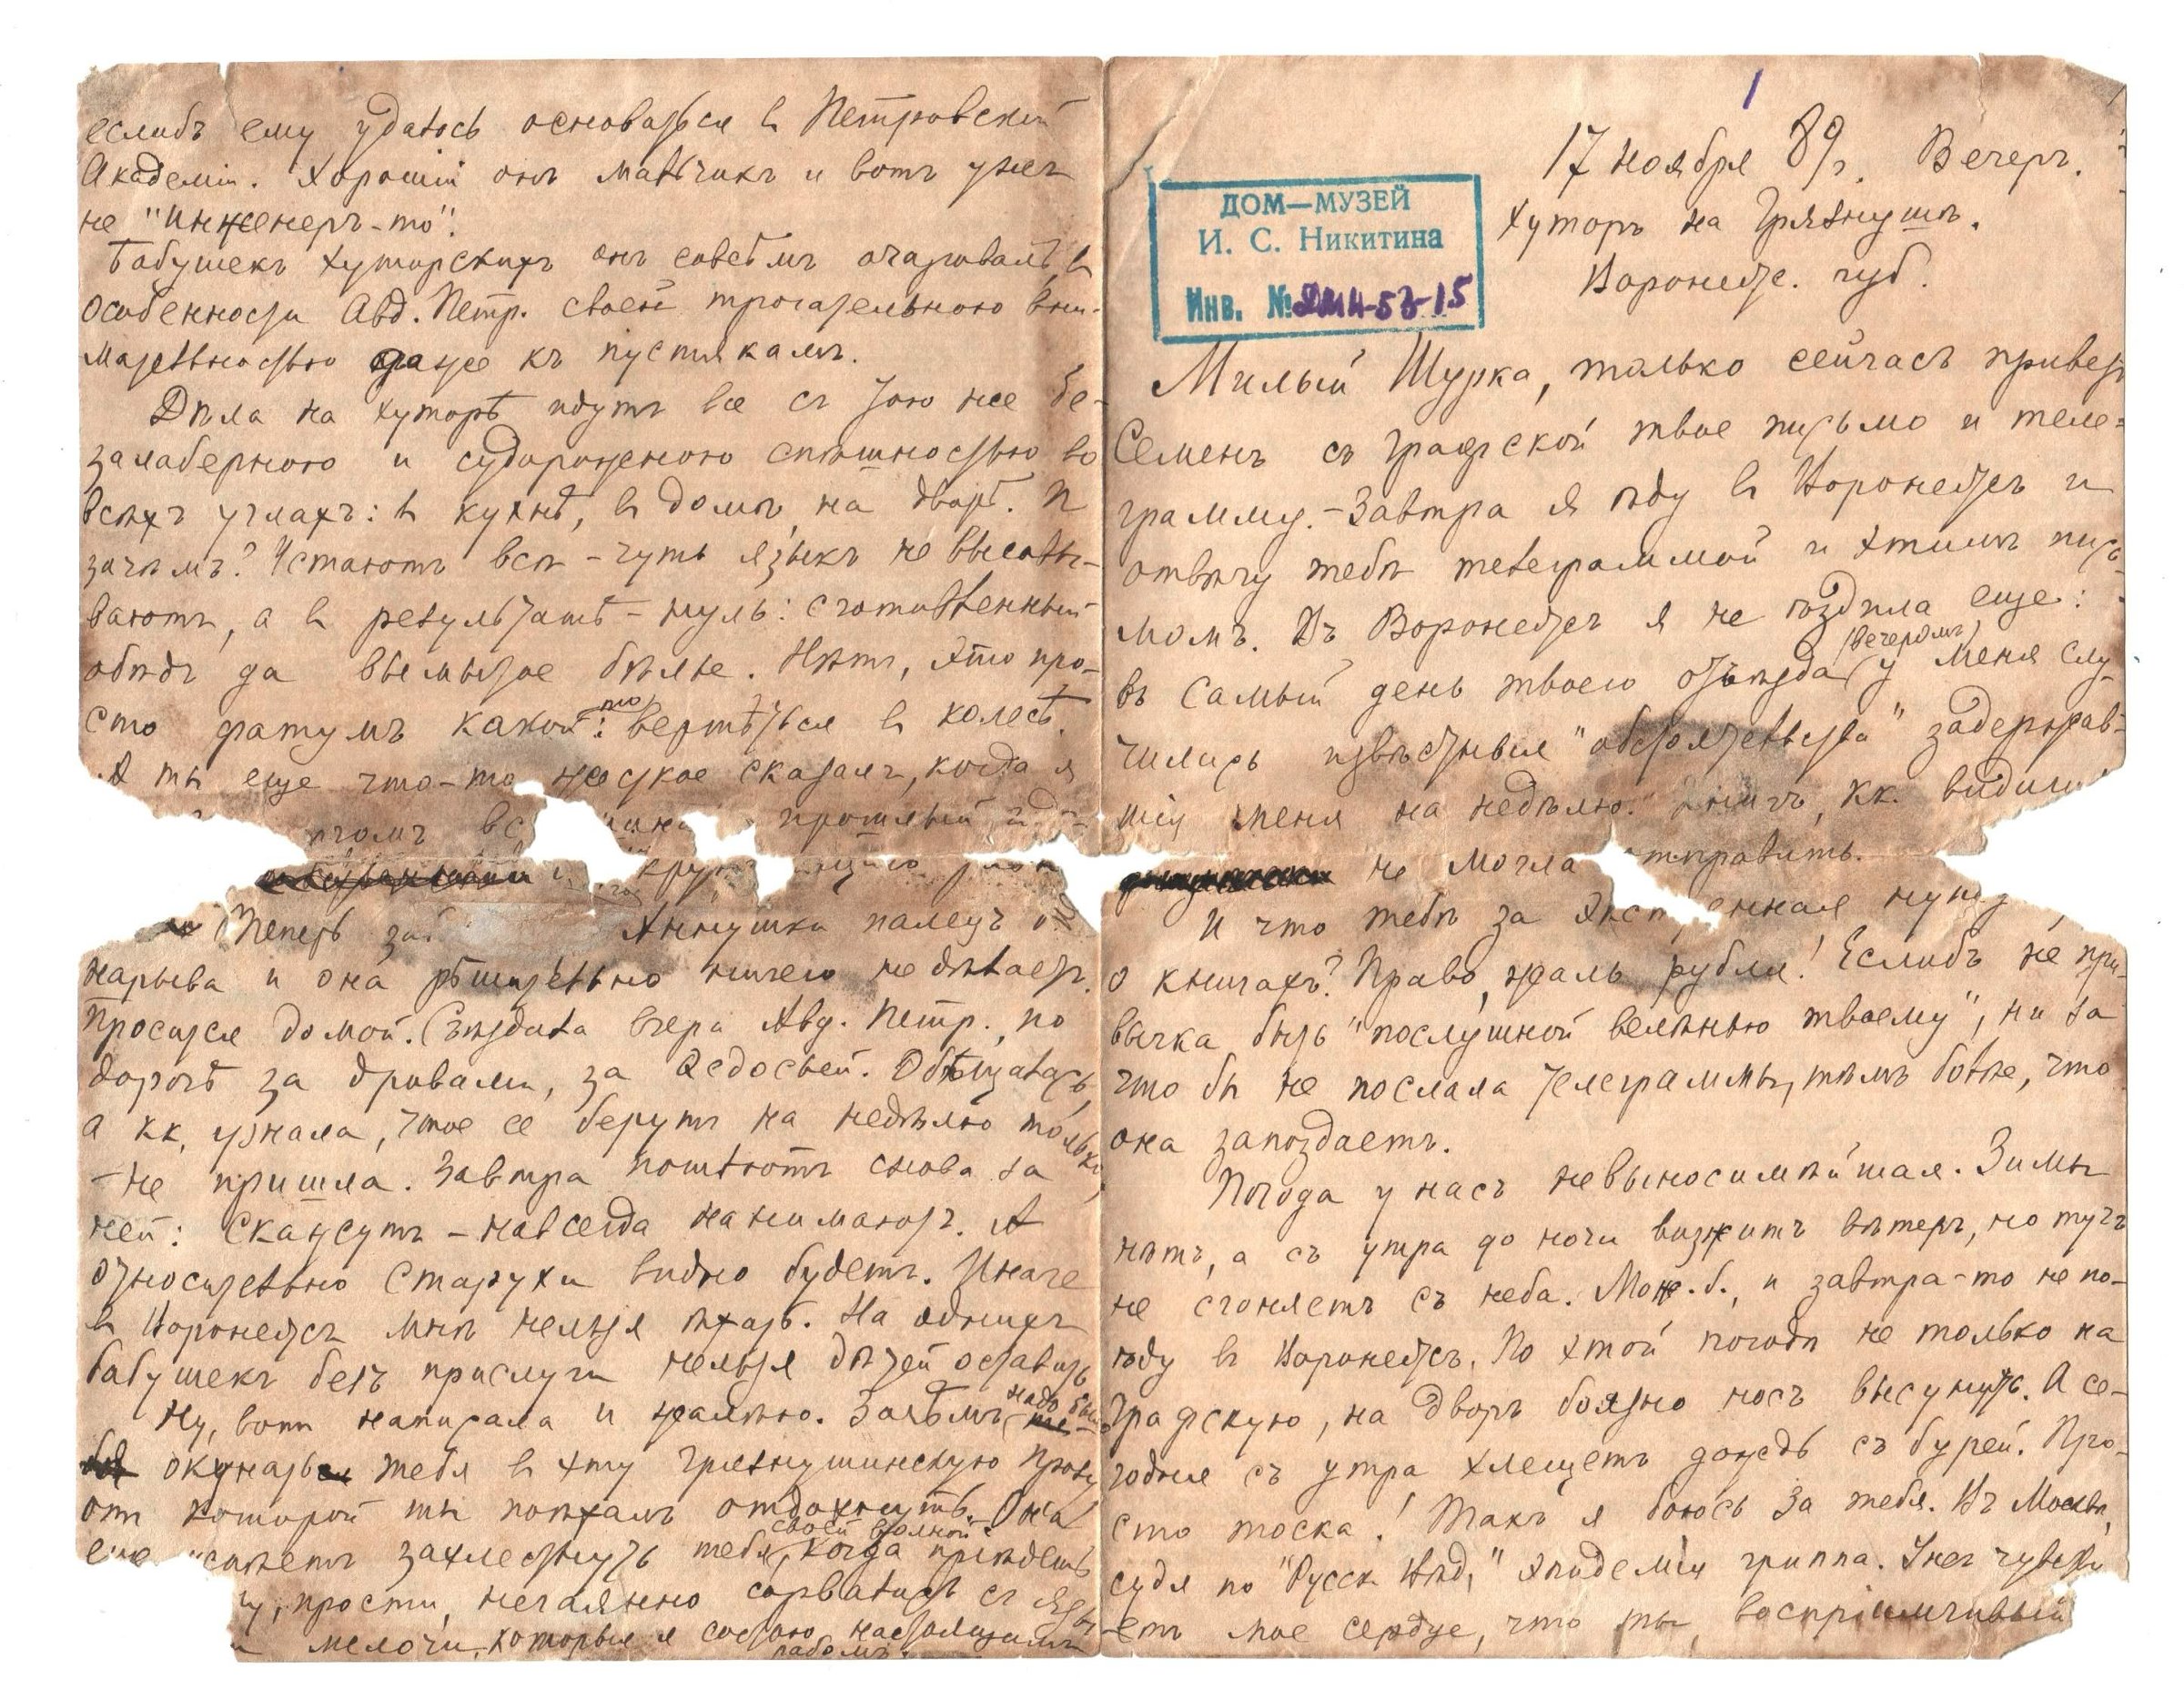 1
17 ноября 89 г. Вечеръ.
Хуторъ на Грязнушѣ.
Воронежс. губ.
ДОМ—МУЗЕЙ
И. С. Никитина
Инв. №
Милый Шурка, только сейчасъ привезъ
Семенъ съ Графской твое письмо и теле-
грамму. – Завтра я ѣду въ Воронежъ и
отвѣчу тебѣ телеграммой и этимъ пись-
момъ. Въ Воронежъ я не ѣздила еще:
въ самый день твоего отъѣзда (вечеромъ) у меня слу-
чились извѣстныя "обстоятельства" задержав-
шія меня на недѣлю. Книгъ, кк. видишь
не могла отправить.
И что тебѣ за нужда
о книгахъ? Право, жаль рубля! Еслибъ не при-
вычка быть "послушной велѣнью твоему", ни за
что бы не послала телеграммы, тѣмъ болѣе, что
она запоздаетъ.
Погода у насъ невыносимѣйшая. Зимы
нѣтъ, а съ утра до ночи визжитъ вѣтеръ, но тучъ
не сгоняетъ съ неба. Мож. б., и завтра-то не по-
ѣду въ Воронежъ. По этой погодѣ не только на
Графскую, на дворъ боязно носъ высунуть. А се-
годня съ утра хлещетъ дождь съ бурей. Про-
сто тоска! Такъ я боюсь за тебя. Въ Москвѣ,
судя по "Русск. Вѣд." эпидемія гриппа. Ужъ чувству-
етъ мое сердце, что ты, воспріимчивый
еслибъ ему удалось основаться въ Петровской
Академіи. Хорошій онъ мальчикъ и вотъ ужъ
не "инженеръ-то".
Бабушекъ хуторскихъ онъ совсѣмъ очаровалъ, въ
особенности Авд. Петр. своей трогательною вни-
мательностью даже къ пустякамъ.
Дѣла на хуторѣ идутъ все съ тою же бе-
залаберною и судорожною спѣшностью во
всѣхъ углахъ: въ кухнѣ, въ домѣ, на дворѣ. И
зачѣмъ? Устаютъ всѣ – чуть языкъ не высовы-
ваютъ, а въ результатѣ – нуль: сготовленный
обѣдъ да вымытое бѣлье. Нѣтъ, это про-
сто фатумъ какой-то: вертѣться въ колесѣ.
А ты еще что-то жалкое сказалъ, когда я
прошлый
Теперь Аннушки палецъ
нарыва и она рѣшительно ничего не дѣлаетъ.
Просится домой. Съѣздила вчера Авд. Петр., по
дорогѣ за дровами, за Ѳедосьей. Обѣщалась,
а кк. узнала, что ее берутъ на недѣлю только,
– не пришла. Завтра пошлютъ снова за
ней: скажутъ – навсегда нанимаютъ. А
относительно старухи видно будетъ. Иначе
въ Воронежъ мнѣ нельзя ѣхать. На однихъ
бабушекъ безъ прислуги нельзя дѣтей оставить
Ну, вотъ написала и жалѣю. Зачѣмъ надо было
окунать тебя въ эту грязнушинскую прозу
отъ которой ты поѣхалъ отдохнуть. Она
еще успѣетъ захлестнуть тебя своей волной, когда пріѣдешь
ну, прости, нечаянно сорвалось съ языка
мелочи, которыя я состою настоящимъ
рабомъ.